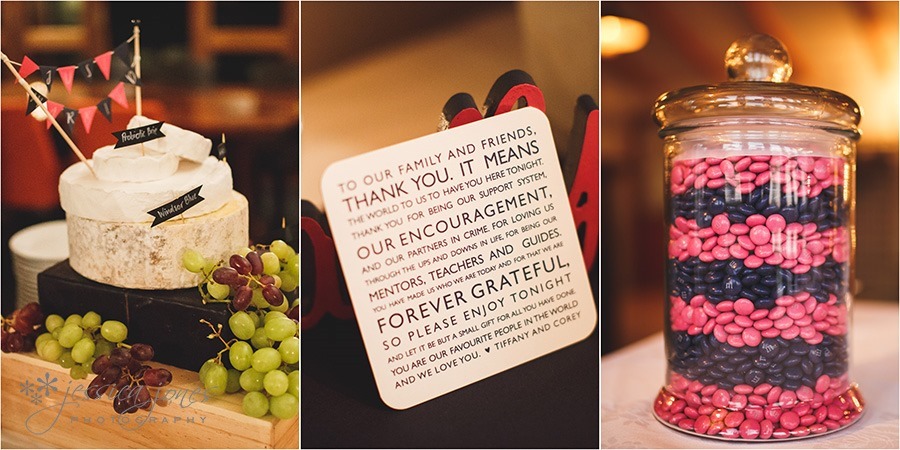 J S
K
Probiotic Brie
Windsor Blue
TO OUR FAMILY AND FRIENDS,
THANK YOU. IT MEANS
THE WORLD TO US TO HAVE YOU HERE TONIGHT.
THANK YOU FOR BEING OUR SUPPORT SYSTEM,
OUR ENCOURAGEMENT,
AND OUR PARTNERS IN CRIME. FOR LOVING US
THROUGH THE UPS AND DOWNS IN LIFE. FOR BEING OUR
MENTORS, TEACHERS AND GUIDES.
YOU HAVE MADE US WHO WE ARE TODAY AND FOR THAT WE ARE
FOREVER GRATEFUL,
SO PLEASE ENJOY TONIGHT
AND LET IT BE BUT A SMALL GIFT FOR ALL YOU HAVE DONE.
YOU ARE OUR FAVOURITE PEOPLE IN THE WORLD
AND WE LOVE YOU. ♥ TIFFANY AND COREY
jessica jones
PHOTOGRAPHY